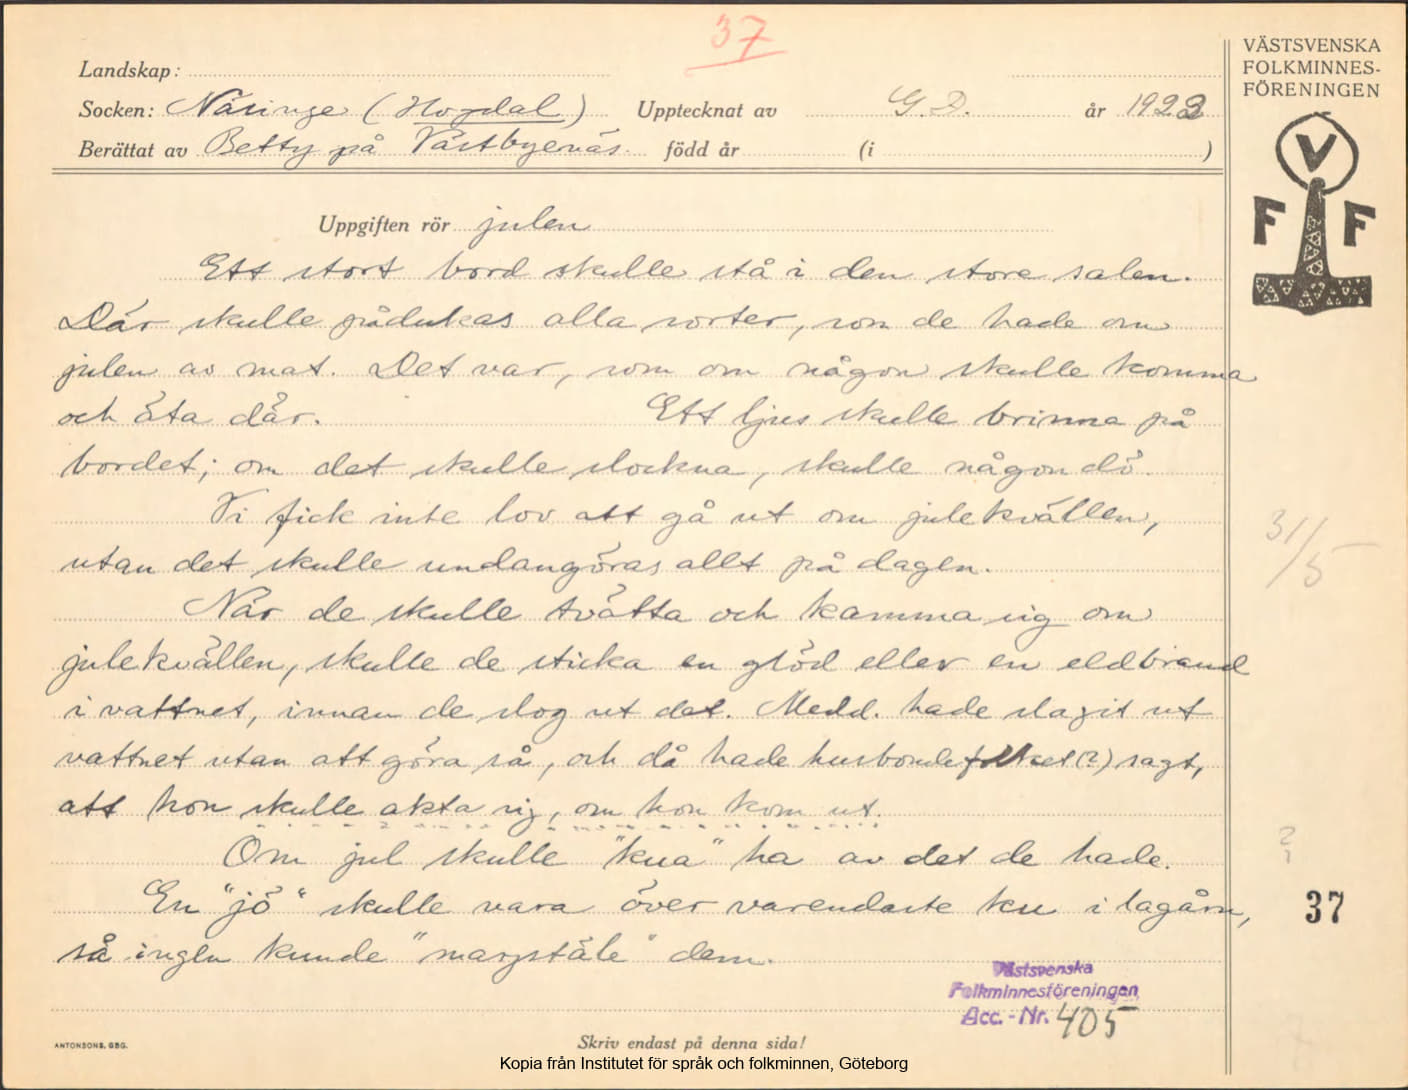 37
VÄSTSVENSKA
FOLKMINNES-
FÖRENINGEN
V
F F
Landskap:
Socken: Näsinge (Hogdal) Upptecknat av G. D. år 1922
Berättat av Betty på Västbyenäs. född år (i )
Uppgiften rör julen
Ett stort bord skulle stå i den store salen.
Där skulle pådukas alla sorter, som de hade om
julen av mat. Det var, som om någon skulle komma
och äta där. Ett ljus skulle brinna på
bordet; om det skulle slockna, skulle någon dö.
Vi fick inte lov att gå ut om julekvällen,
utan det skulle undangöras allt på dagen.
När de skulle tvätta och kamma sig om
julekvällen, skulle de sticka en glöd eller en eldbrand
i vattnet, innan de slog ut det. Medd. hade slagit ut
vattnet utan att göra så, och då hade husbondefolket (?) sagt,
att hon skulle akta sig, om hon kom ut.
Om jul skulle "kua" ha av det de hade.
En "jö" skulle vara över varendaste ku i lagårn,
så ingen kunde "margstäle" dem.
31/5
?
37
Västsvenska
Folkminnesföreningen
Acc.-Nr. 405
ANTONSONS, GBG.
Skriv endast på denna sida!
Kopia från Institutet för språk och folkminnen, Göteborg